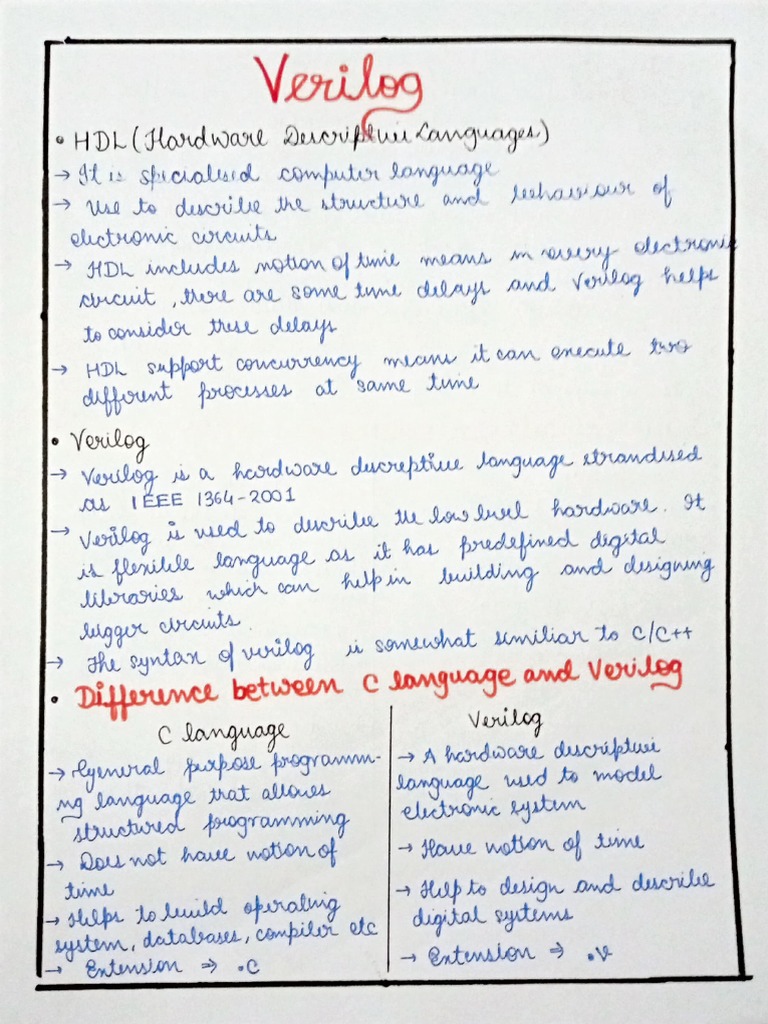 Verilog
• HDL (Hardware Descriptive Languages)
→ It is specialised computer language
→ Use to describe the structure and behaviour of
electronic circuits
→ HDL includes notion of time means in every electronic
circuit, there are some time delays and Verilog helps
to consider these delays
→ HDL support concurrency means it can execute two
different processes at same time
• Verilog
→ Verilog is a hardware descreptive language strandised
as IEEE 1364-2001
→ Verilog is used to describe the low level hardware. It
is flexible language as it has predefined digital
libraries which can help in building and designing
bigger circuits.
→ The syntax of verilog is somewhat similiar to C/C++
• Difference between C language and Verilog
C language
→ General purpose programm-
ng language that allows
structured programming
→ Does not have notion of
time
→ Helps to build operating
system, databases, compiler etc
→ Extension ⇒ .C
Verilog
→ A hardware descriptive
language used to model
electronic system
→ Have notion of time
→ Help to design and describe
digital systems
→ Extension ⇒ .v